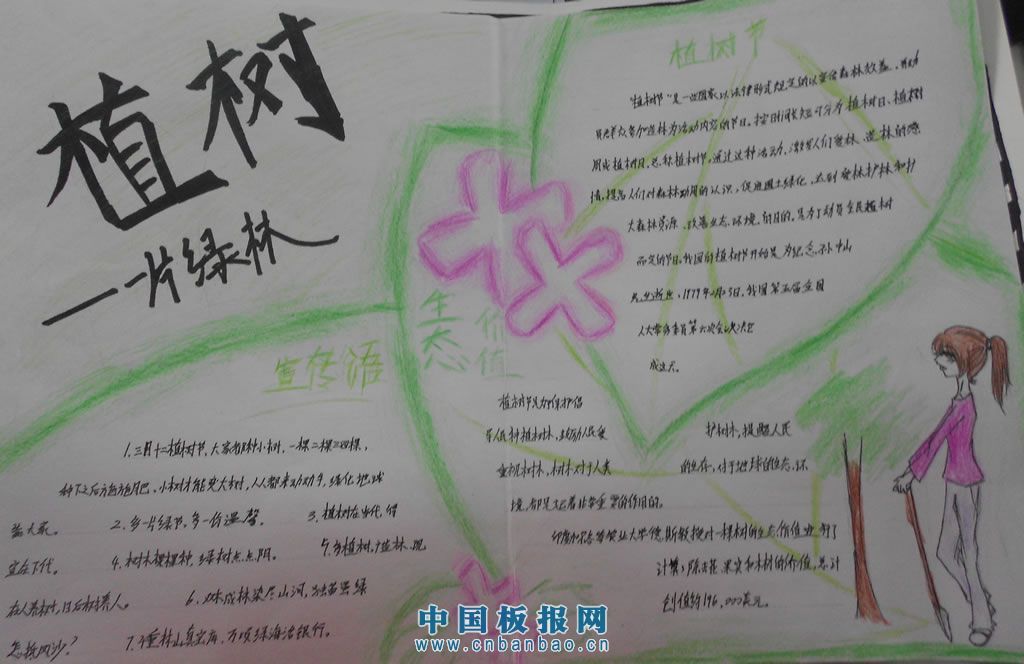 植树
一片绿林
植树节
"植树节"是一些国家以法律形式规定的以宣传森林效益，并动
员群众参加造林为活动内容的节日。按时间长短可分为植树日、植树
周或植树月，总称植树节。通过这种活动，激发人们爱林、造林的感
情，提高人们对森林功用的认识，促进国土绿化，达到爱林护林和扩
大森林资源、改善生态环境的目的。是为了动员全民植树
而定的节日。我国的植树节开始是为纪念孙中山
先生逝世。1979年2月23日，我国第五届全国
人大常务委员第六次会议决定
成立为。
生态价值
植树节是为了保护倡
导人民种植树林，鼓励人民爱护树林，提醒人民
重视树林，树林对于人类的生存，对于地球的生态环
境，都是起着非常重要的作用的。
印度加尔各答农业大学德斯教授对一棵树的生态价值进行了
计算，除去花果实和木材的价值，总计
创值约196,000美元。
宣传语
1.三月十二植树节，大家都种小树，一棵二棵三四棵，
种下之后施施肥，小树才能变大树，人人都来动动手，绿化地球
益大家。 2.多一片绿节，多一份温馨。 3.植树在当代，信
宜在下代。 4.树木棵棵种，绿树点点阴。 5.多植树，广造林，现
在人养树，日后树养人。 6.功成林染尽山河，独苗黑绿
怎挡风沙？ 7.千重林山真宝库，万顷绿海活银行。
中国板报网
www.cnbanbao.cn